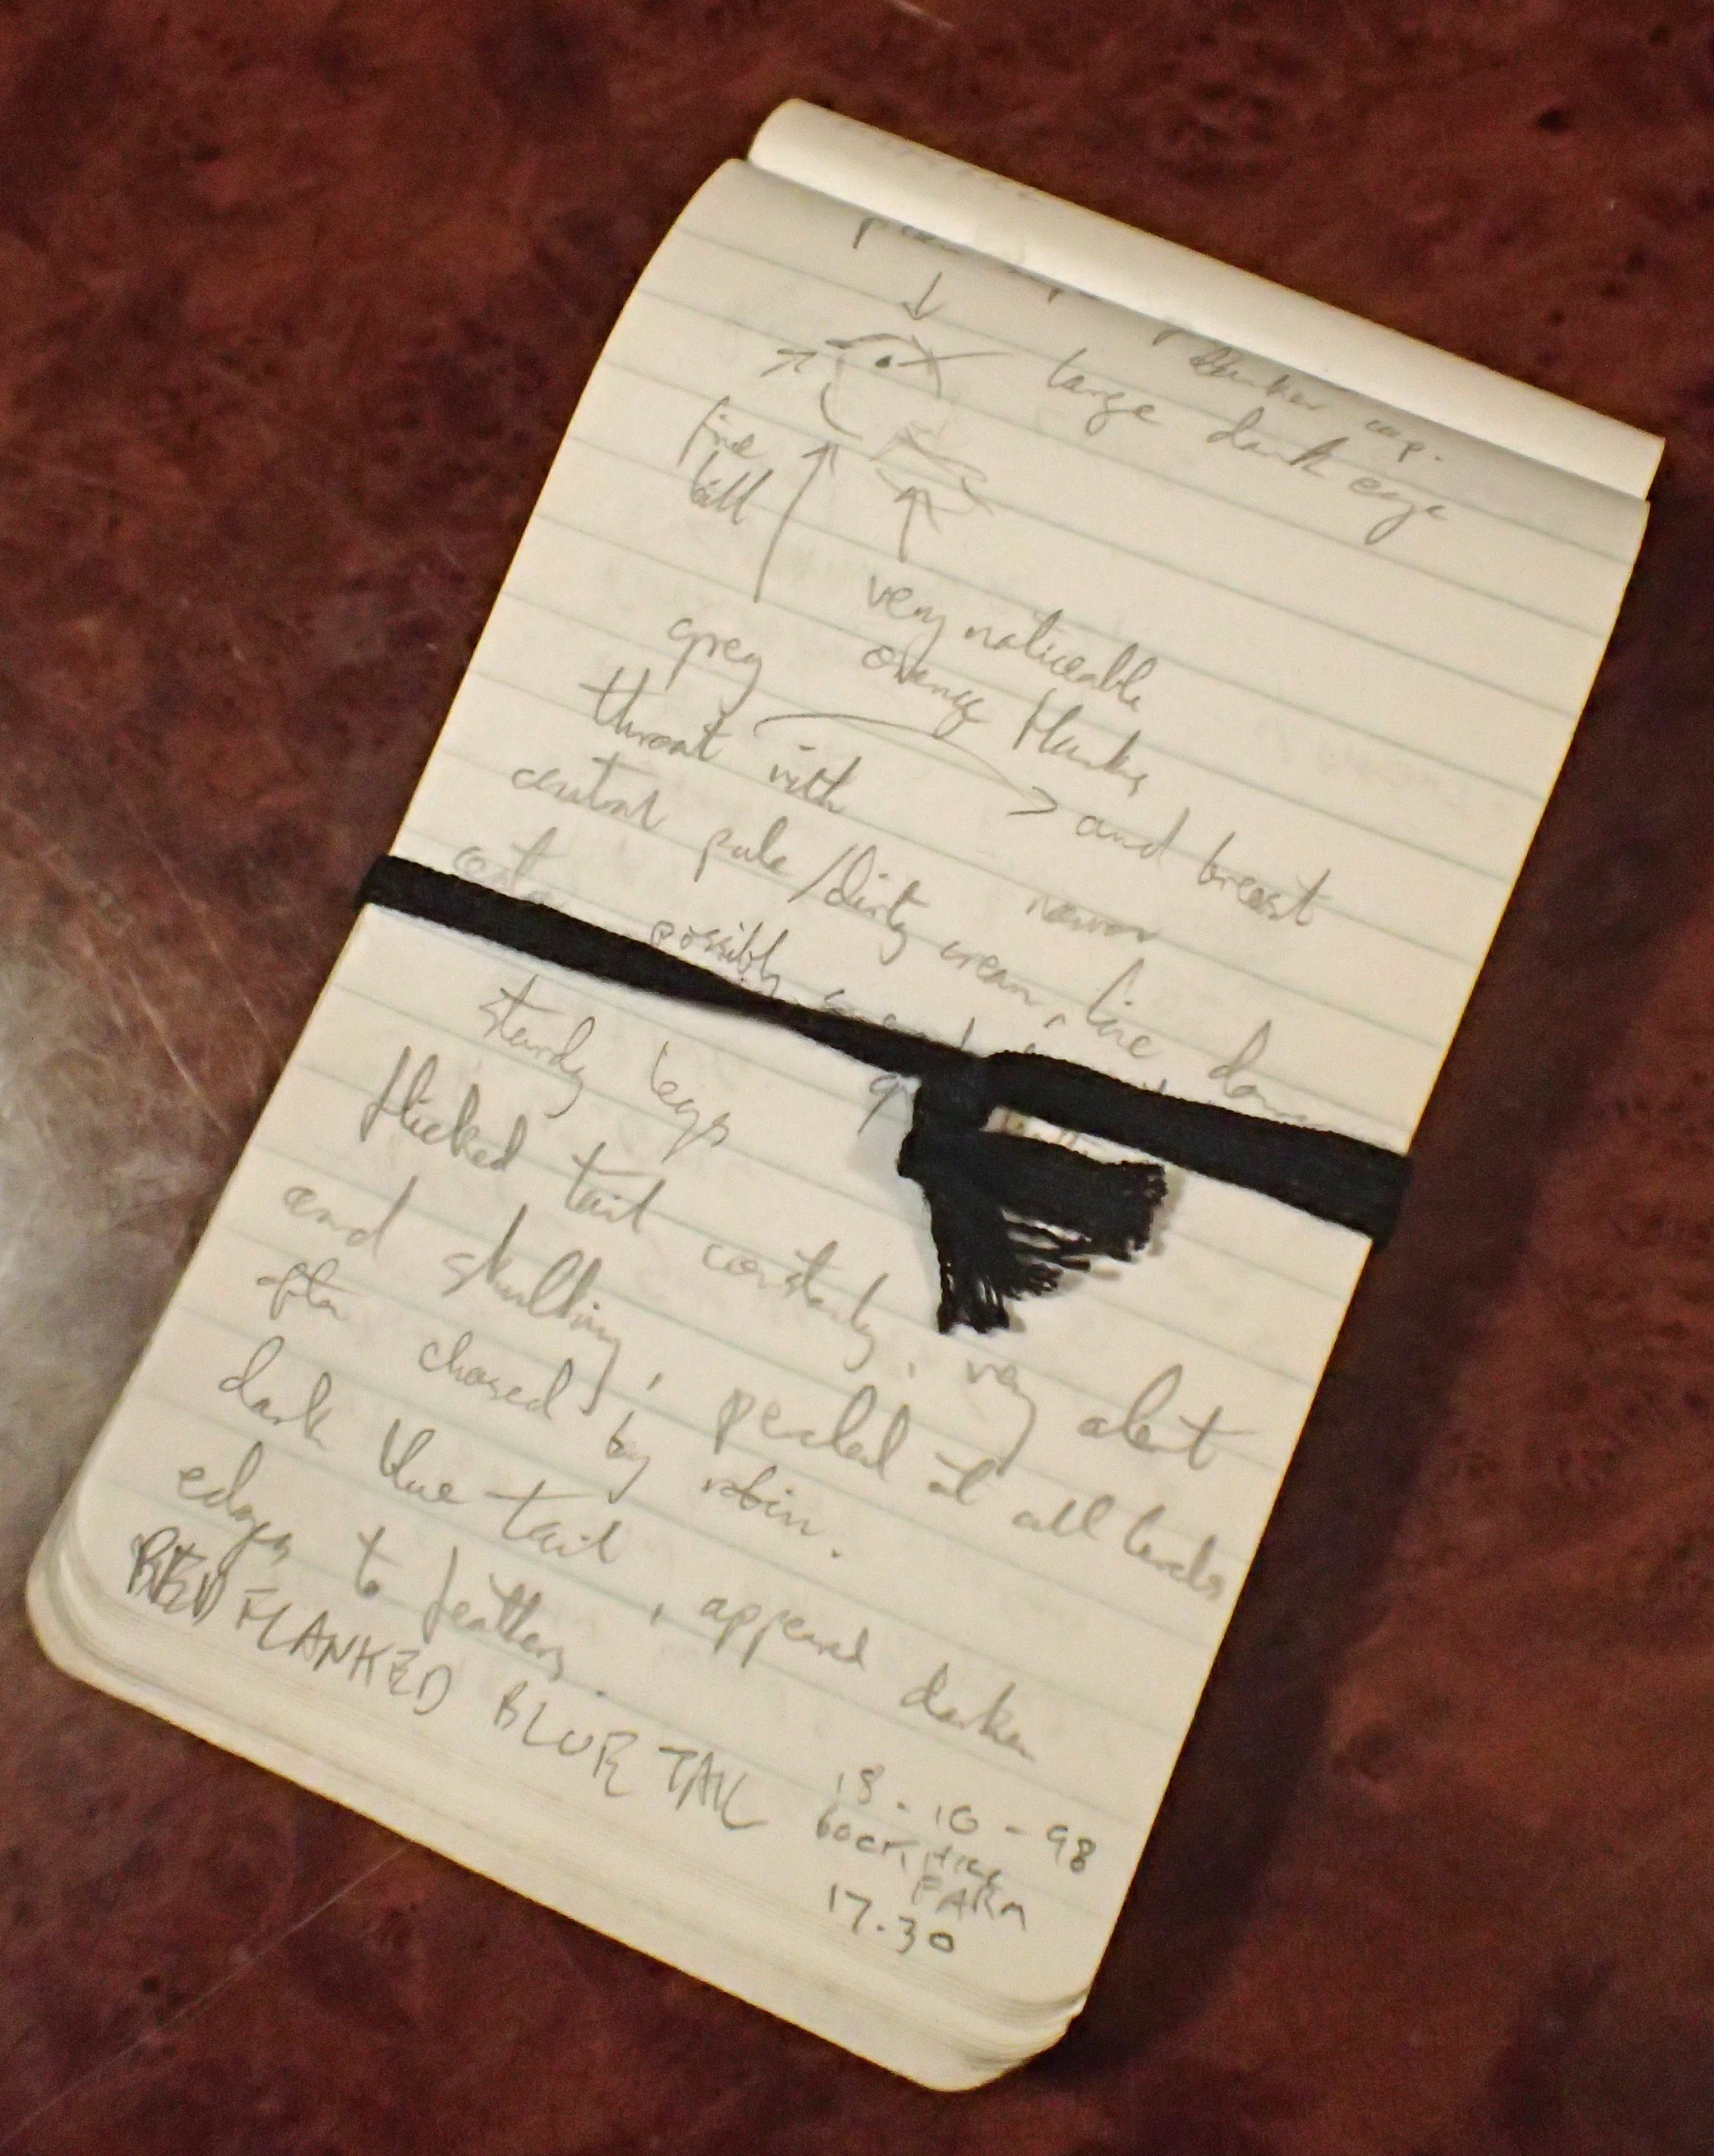 large dark eye
fine
bill
very noticeable
grey orange flanks
throat with and breast
narrow
central pale/dirty cream, line down
possibly
sturdy legs
flicked tail constantly, very alert
and skulking, perched at all levels
often chased by robin.
dark blue tail, appeared darker
edges to feathers.
RED FLANKED BLUE TAIL
18-10-98
FARM
17.30